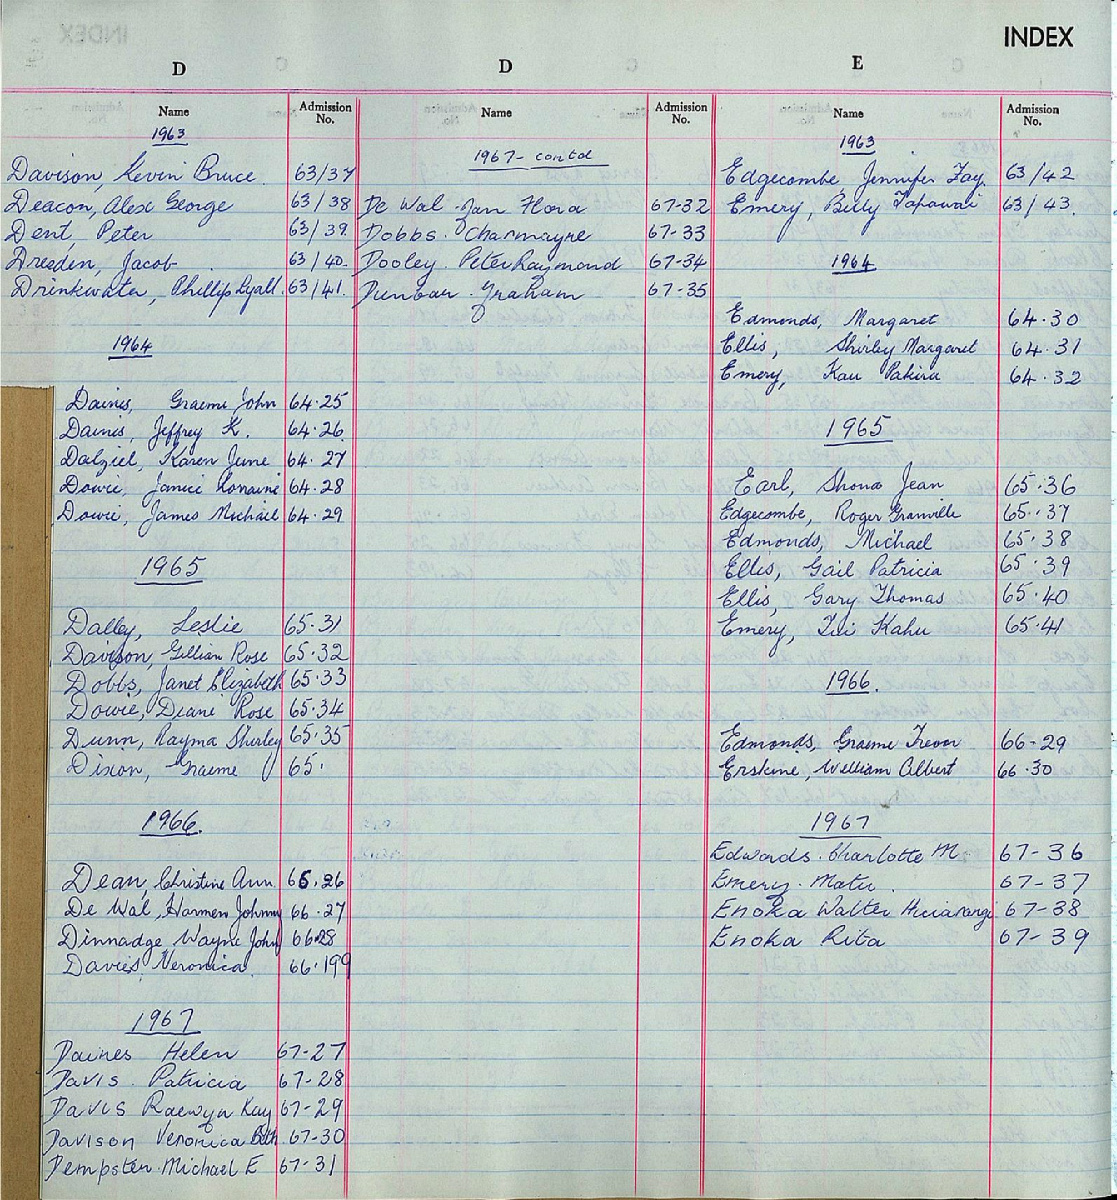 INDEX
D
Name
Admission No.
1963
Davison, Kevin Bruce 63/37
Deacon, Alex George 63/38
Dent, Peter 63/39
Dresden, Jacob 63/40
Drinkwater, Phillip Lyall. 63/41
1964
Dainis, Graeme John 64.25
Dainis, Jeffrey K. 64.26
Dalziel, Karen June 64.27
Dowie, Janice Lorraine 64.28
Dowie, James Michael 64.29
1965
Dalley, Leslie 65.31
Davison, Gillian Rose 65.32
Dobbs, Janet Elizabeth 65.33
Dowie, Diane Rose 65.34
Dunn, Rayma Shirley 65.35
Dixon, Graeme 65.
1966.
Dean, Christine Ann. 66.26
De Wal, Harmen Johnny 66.27
Dinnadge Wayne John 66.28
Davies, Veronica 66.199
1967
Daines Helen 67-27
Davis. Patricia 67-28
Davis Raewyn Kay 67-29
Davison Veronica Beth 67-30
Dempster. Michael E 67-31
D
Name
Admission No.
1967- contd
De Wal Jan Flora 67-32
Dobbs. Charmayne 67-33
Dooley. Peter Raymond 67-34
Dunbar. Graham 67-35
E
Name
Admission No.
1963
Edgecombe, Jennifer Fay. 63/42
Emery, Billy Tapawai 63/43.
1964
Edmonds, Margaret 64.30
Ellis, Shirley Margaret 64.31
Emery, Kau Pakira 64.32
1965
Earl, Shona Jean 65.36
Edgecombe, Roger Granville 65.37
Edmonds, Michael 65.38
Ellis, Gail Patricia 65.39
Ellis, Gary Thomas 65.40
Emery, Tui Kahu 65.41
1966.
Edmonds, Graeme Trevor 66-29
Erskine, William Albert 66.30
1967
Edwards. Charlotte M. 67-36
Emery. Matu. 67-37
Enoka Walter 67-38
Enoka Rita 67-39